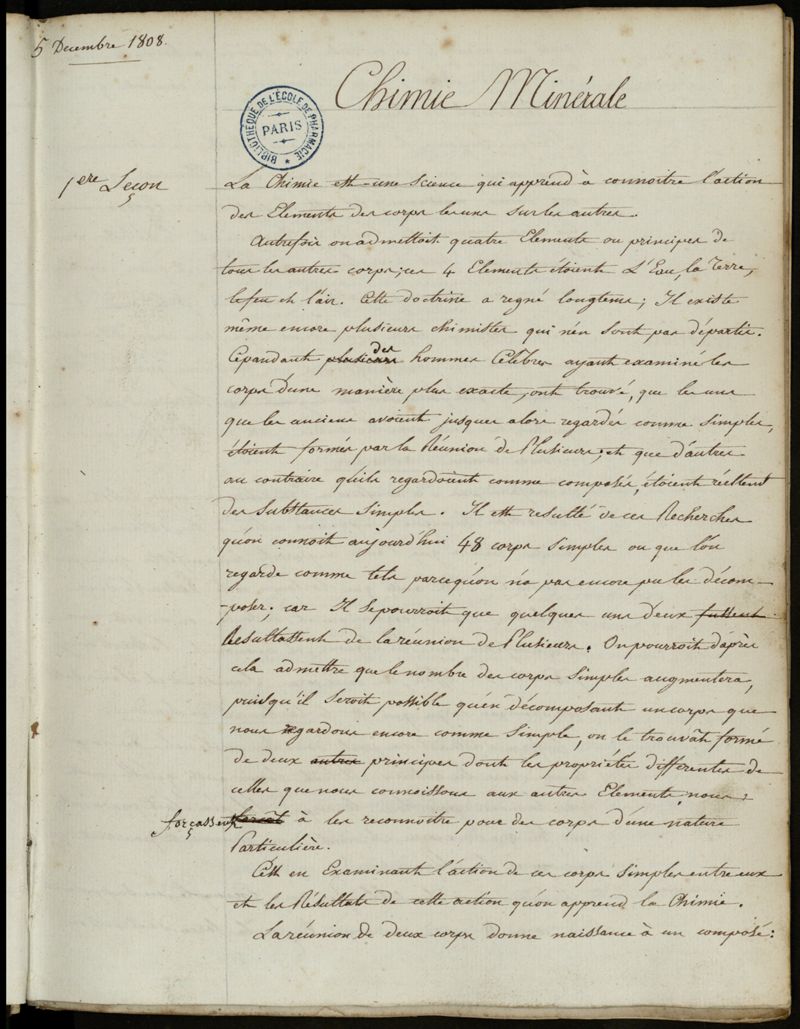 5 Decembre 1808.
Chimie Minérale
BIBLIOTHÈQUE DE L'ÉCOLE DE PHARMACIE
PARIS
1ere Leçon
La Chimie est une Science qui apprend à connoitre l'action
des Elements des corps les uns sur les autres.
Autrefois on admettoit quatre Elements ou principes de
tous les autres corps; ces 4 Elements étoient L'Eau, la Terre,
le feu et l'air. Cette doctrine a regné longtems; Il existe
même encore plusieurs chimistes qui n'en sont pas départis.
Cependant plusieurs des hommes Célèbres ayant examiné les
corps d'une manière plus exacte, ont trouvé, que les uns
que les anciens avoient jusques alors regardés comme simples,
étoient formés par la Réunion de Plusieurs; et que d'autres
au contraire qu'ils regardoient comme composés, étoient réellemt
des Substances Simples. Il est resulté de ces Recherches
qu'on connoit aujourd'hui 48 corps simples ou que l'on
regarde comme tels parcequ'on n'a pas encore pu les décom-
-poser; car Il se pourroit que quelques uns d'eux fussent
Resultassent de la réunion de Plusieurs. On pourroit d'après
cela admettre que le nombre des corps Simples augmentera,
puisqu'il seroit possible qu'en décomposant un corps que
nous regardons encore comme Simple, on le trouvât formé
de deux autres principes dont les propriétés différentes de
celles que nous connoissons aux autres Elements, nous
forçassent forcât à les reconnoitre pour des corps d'une nature
Particulière.
C'est en Examinant l'action de ces corps Simples entre eux
et les Résultats de cette action qu'on apprend la Chimie.
La réunion de deux corps donne naissance à un composé: